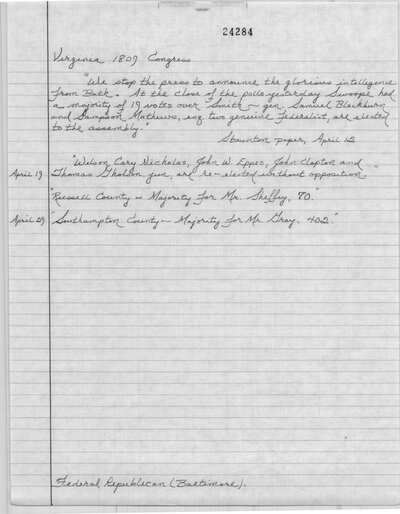 24284
Virginia 1809 Congress
"We stop the press to announce the glorious intelligence
from Bath. At the close of the polls yesterday Swoope had
a majority of 19 votes over Smith - gen. Samuel Blackburn
and Sampson Mathews, esq. two genuine Federalist, are elected
to the assembly."
Staunton paper, April 12
"Welson Cary Nicholas, John W. Eppes, John Clopton and
April 19 Thomas Gholson jun, are re-elected without opposition"
"Russell County ~ Majority for Mr. Sheffey, 70."
April 29 "Southampton County ~ Majority for Mr. Gray, 402."
Federal Republican (Baltimore).